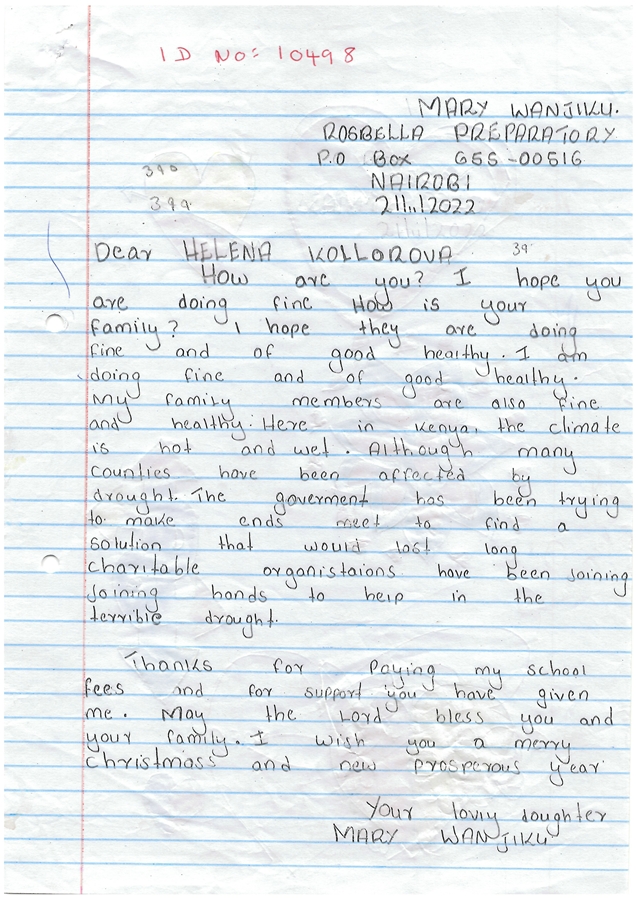 ID NO: 10498
MARY WANJIKU.
ROSBELLA PREPARATORY
P.O Box 655-00516
390
NAIROBI
399
21/11/2022
Dear HELENA KOLLOROVA 39
How are you? I hope you
are doing fine How is your
family? I hope they are doing
fine and of good healthy. I am
doing fine and of good healthy.
My family members are also fine
and healthy. Here in Kenya, the climate
is hot and wet. Although many
counties have been affected by
drought. The goverment has been trying
to make ends meet to find a
solution that would last long
charitable organistaions have been joining
joining hands to help in the
terrible drought.
Thanks for paying my school
fees and for support you have given
me. May the Lord bless you and
your family. I wish you a merry
christmass and new prosperous year.
Your lovly doughter
MARY WANJIKU